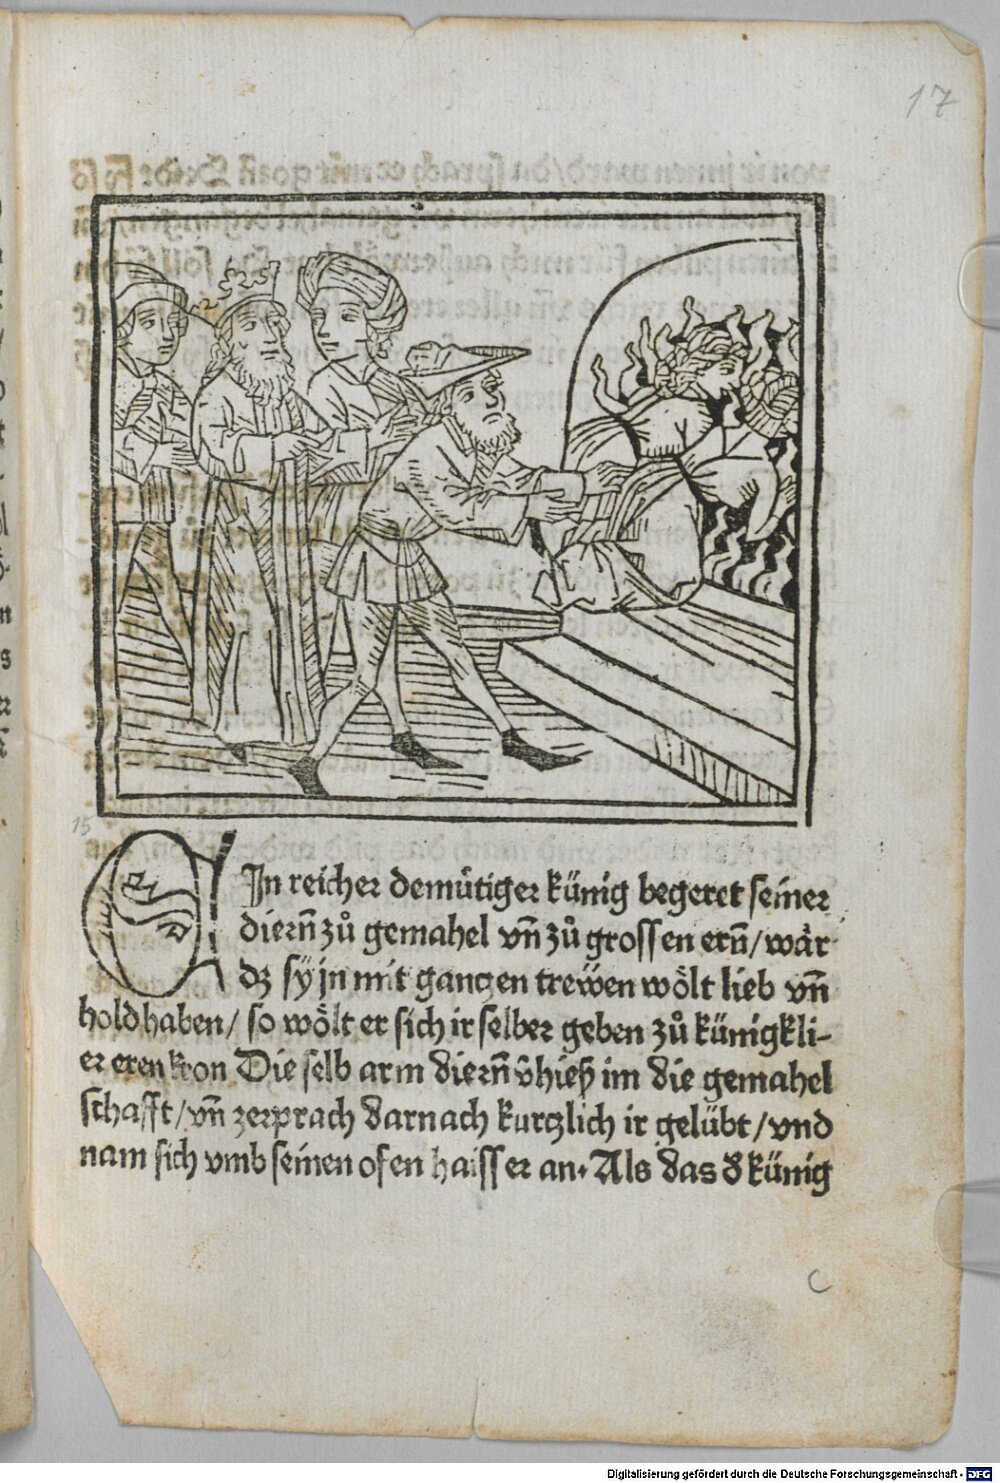 17
15
EIn reicher demůtiger künig begeret seiner
diern̄ zů gemahel vn̄ zů grossen ern̄/ wår
dz sÿ jn mit gantzen trewen wölt lieb vn̄
hold haben/ so wölt er sich ir selber geben zů künigkli-
er eren kron Die selb arm diern̄ v̄hieß im die gemahel
schafft/ vn̄ zerprach darnach kurtzlich ir gelübt/ vnd
nam sich vmb seinen ofen haisser an. Als das d̄ künig
c
Digitalisierung gefördert durch die Deutsche Forschungsgemeinschaft - DFG